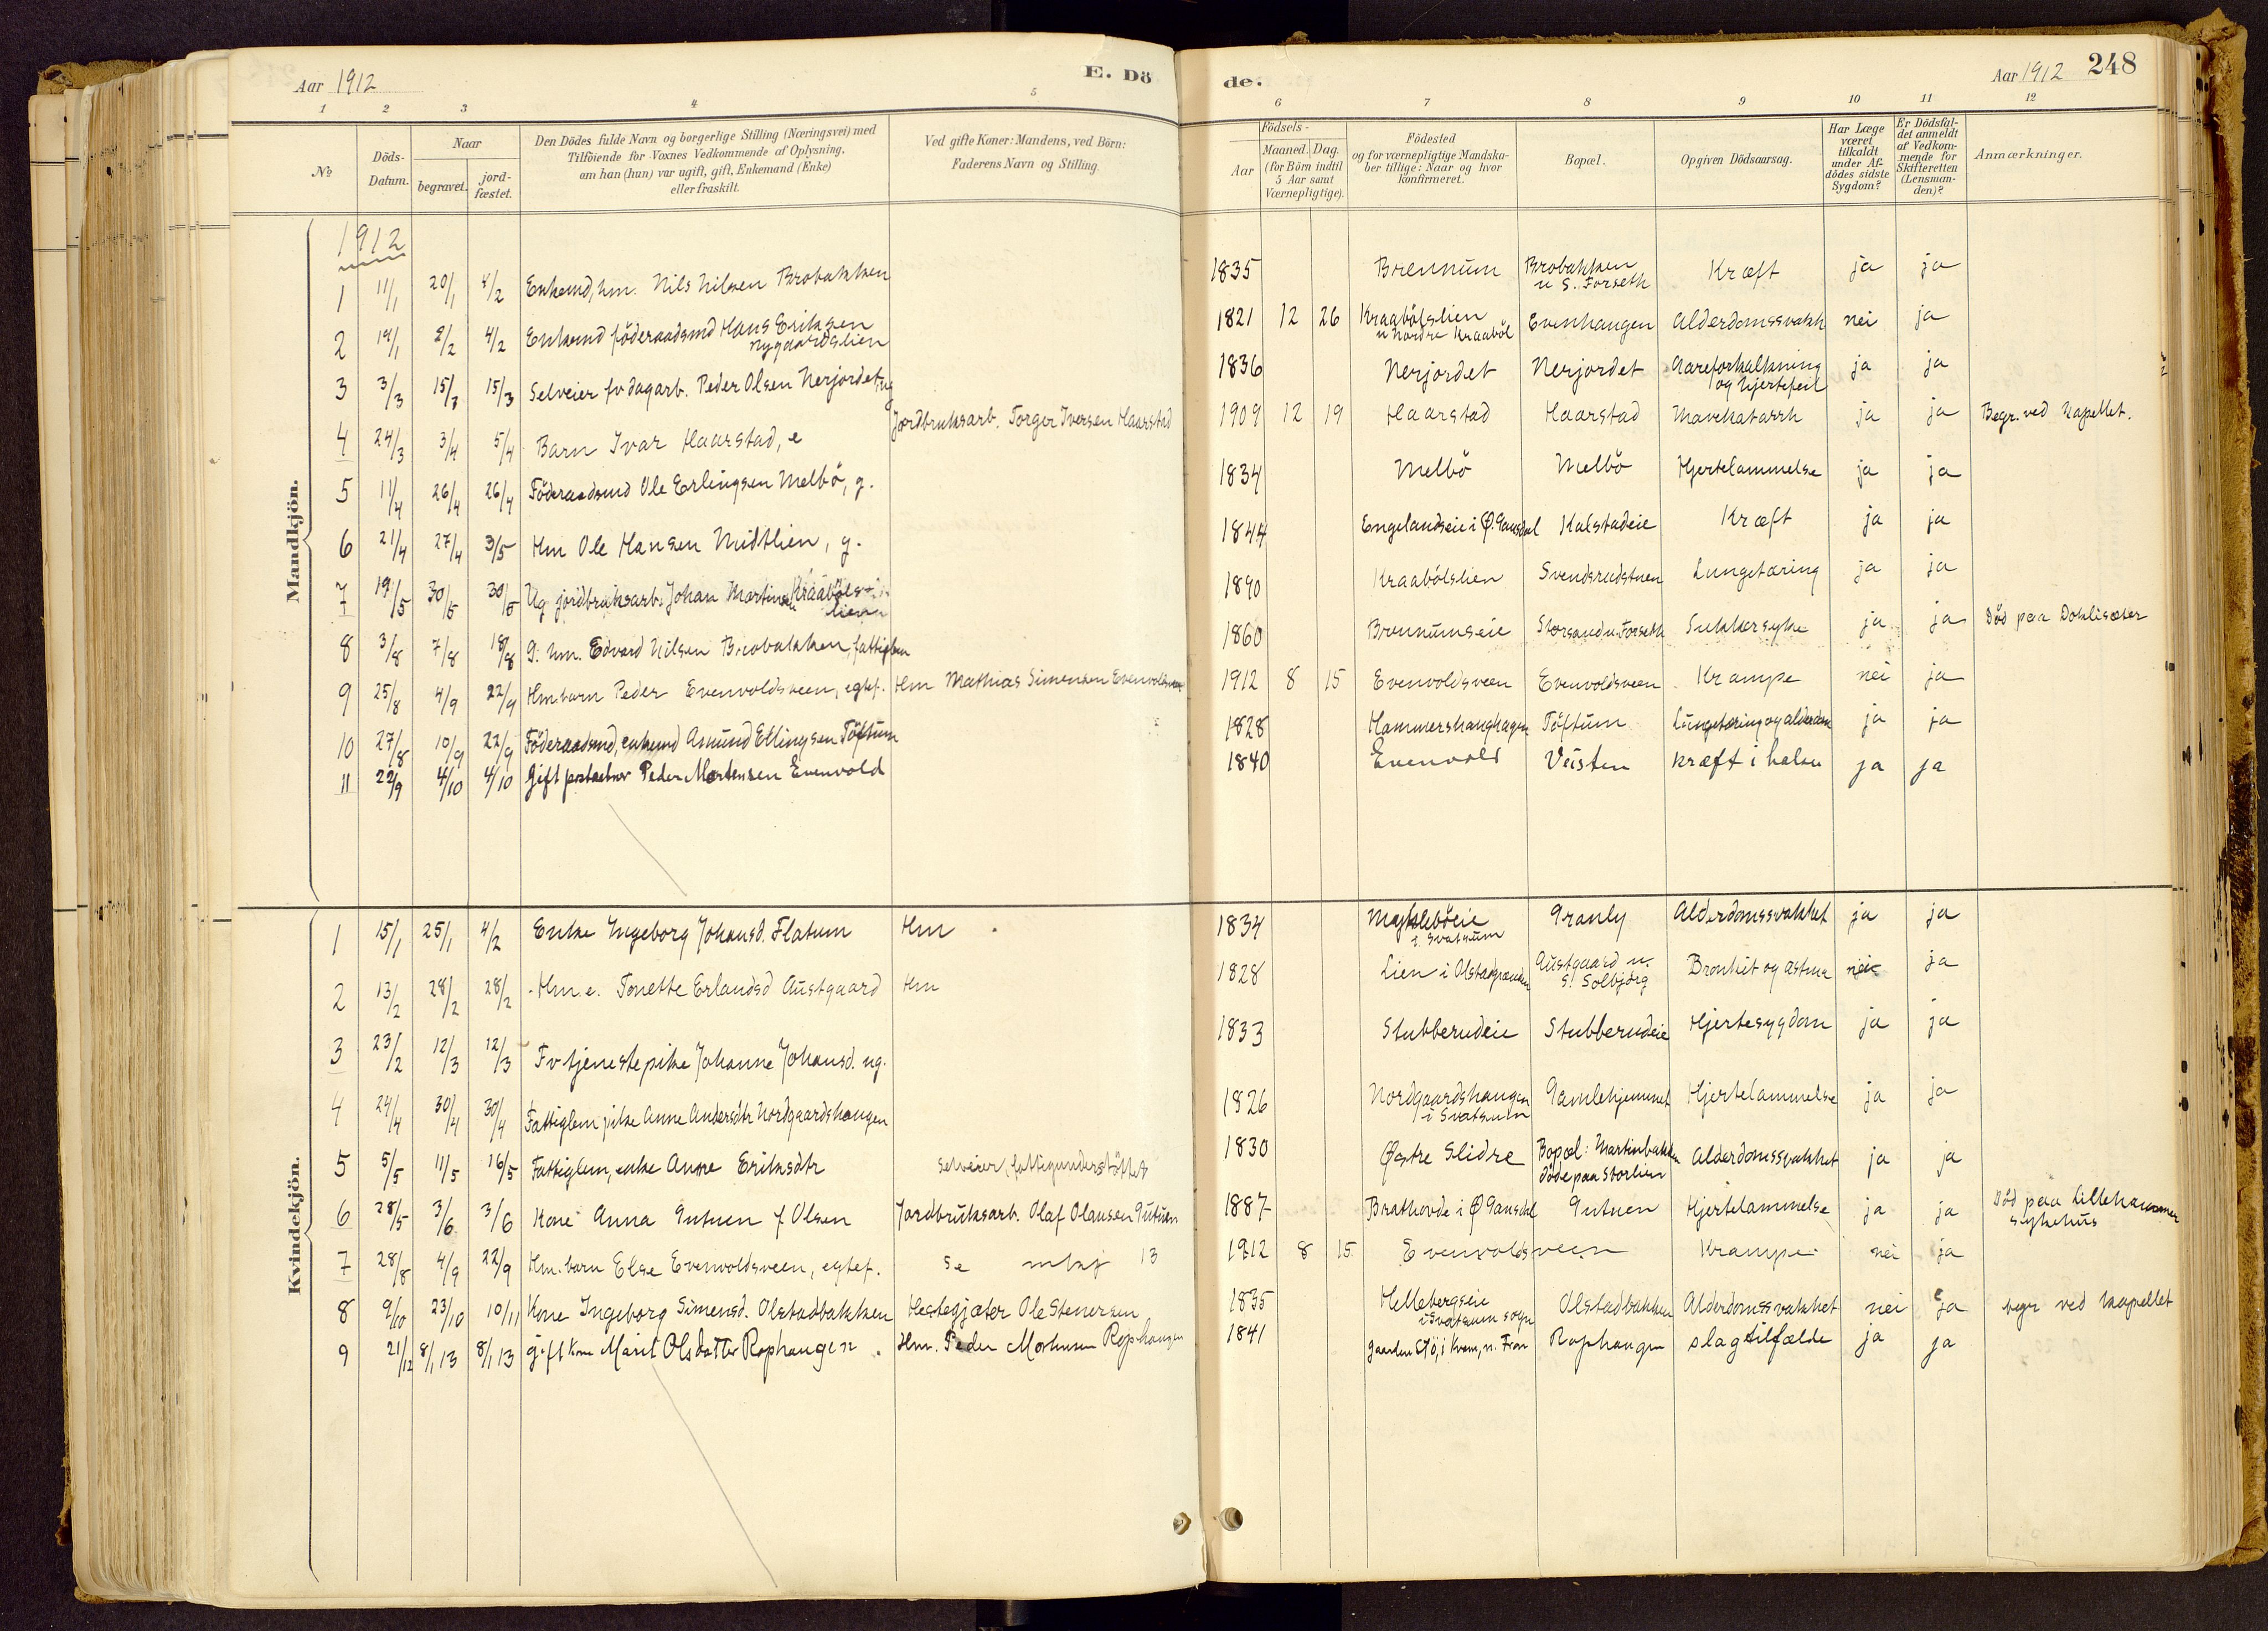 Aar 1912 E. Döde. Aar 1912 248
1 2 3 4 5 6 7 8 9 10 11 12
No
Döds-Datum.
Naar
begravet.
jord-fæstet.
Den Dödes fulde Navn og borgerlige Stilling (Næringsvei) med
Tilföiende for Voxnes Vedkommende af Oplysning,
om han (hun) var ugift, gift, Enkemand (Enke)
eller fraskilt.
Ved gifte Koner: Mandens, ved Börn:
Faderens Navn og Stilling.
Födsels-
Aar
Maaned. Dag.
(for Börn indtil
5 Aar samt
Værnepligtige).
Födested
og for værnepligtige Mandska-
ber tillige: Naar og hvor
konfirmeret.
Bopæl.
Opgiven Dödsaarsag.
Har Læge
været
tilkaldt
under Af-
dödes sidste
Sygdom?
Er Dödsfal-
det anmeldt
af Vedkom-
mende for
Skifteretten
(Lensman-
den)?
Anmærkninger.
Mandkjön.
1912
1 11/1 20/1 4/2 Enkemd, hm. Nils Nilsen Brobakken 1835 Brennum Brobakken u S. Forseth Kræft ja ja
2 19/1 2/2 4/2 Enkemd föderaadsmd Hans Eriksen Nygaardslien 1821 12 26 Kraabölslien u Nordre Kraaböl Evenhaugen Alderdomssvakh nei ja
3 3/3 15/3 15/3 Selveier fv dagarb. Peder Olsen Nerjordet, ug 1836 Nerjordet Nerjordet Aareforkalkning og hjertefeil ja ja
4 24/3 3/4 5/4 Barn Ivar Haarstad, e Jordbruksarb. Torger Iversen Haarstad 1909 12 19 Haarstad Haarstad Mavekatarrh ja ja Begr. ved Kapellet.
5 11/4 26/4 26/4 Föderaadsmd Ole Erlingsen Melbö, g. 1834 Melbö Melbö Hjertelammelse ja ja
6 21/4 27/4 3/5 Hm Ole Hansen Midtlien, g. 1844 Engelandseie i Ø. Gausdal Kalstadeie Kræft ja ja
7 19/5 30/5 30/5 Ug jordbruksarb. Johan Martinsen Kraaböls- lien 1890 Kraabölslien Svendsrudstuen Lungetæring ja ja
8 3/8 7/8 18/8 G. hm. Edvard Nilsen Brobakken, fattiglem 1860 Brennumseie Storsand u. Forseth Sukkersyke ja ja Död paa Doklisæter
9 25/8 4/9 22/9 Hm. barn Peder Evenvoldsveen, egtef. Hm Mathias Simensen Evenvoldsveen 1912 8 15 Evenvoldsveen Evenvoldsveen Krampe nei ja
10 27/8 10/9 22/9 Föderaadsmd, enkemd Amund Ellingsen Töftum 1828 Hammershaughagen Töftum Lungetæring og alderdom ja ja
11 22/9 4/10 4/10 Gift Peder Mortensen Evenvold 1840 Evenvold Veisten kræft i halsen ja ja
Kvindekjön.
1 15/1 25/1 4/2 Enke Ingeborg Johansd. Flatum Hm 1834 i Svatsum Granly Alderdomssvakhet ja ja
2 13/2 28/2 28/2 Hm. e. Tonette Erlandsd Austgaard Hm 1828 Lien i Olstadgrænden Austgaard u. S. Solbjörg Bronkit og astma nei ja
3 23/2 12/3 12/3 Fv tjenestepike Johanne Johansd. ug. 1833 Stubberudeie Stubberudeie Hjertesygdom ja ja
4 24/4 30/4 30/4 Fattiglem pike Anne Andersdtr Nordgaardshaugen 1826 Nordgaardshaugen i Svatsum Gamlehjemmet Hjertelammelse ja ja
5 5/5 11/5 16/5 Fattiglem, enke Anne Eriksdtr Selveier, fattigunderstöttet 1830 Østre Slidre Bopæl: Martinbakken döde paa Storlien Alderdomssvakhet ja ja
6 28/5 3/6 3/6 Kone Anna Gutuen f Olsen Jordbruksarb. Olaf Olausen Gutuen 1887 Brathovde i Ø Gausdal Gutuen Hjertelammelse ja ja Död paa Lillehammer sykehus
7 28/8 4/9 22/9 Hm. barn Else Evenvoldsveen, egtef. Se mkj 13 1912 8 15 Evenvoldsveen Krampe nei ja
8 9/10 23/10 10/11 Kone Ingeborg Simensd. Olstadbakken Hestegjæter Ole Stenersen 1835 Hellebergseie i Svatsum sogn Olstadbakken Alderdomssvakhet nei ja begr ved kapellet
9 21/12 8/1 13 8/1 13 gift Kone Marit Olsdatter Rophaugen. Hm. Peder Mortensen Rophaugen 1841 gaarden Stö, i Kvam, n. Fron Rophaugen slagtilfælde ja ja